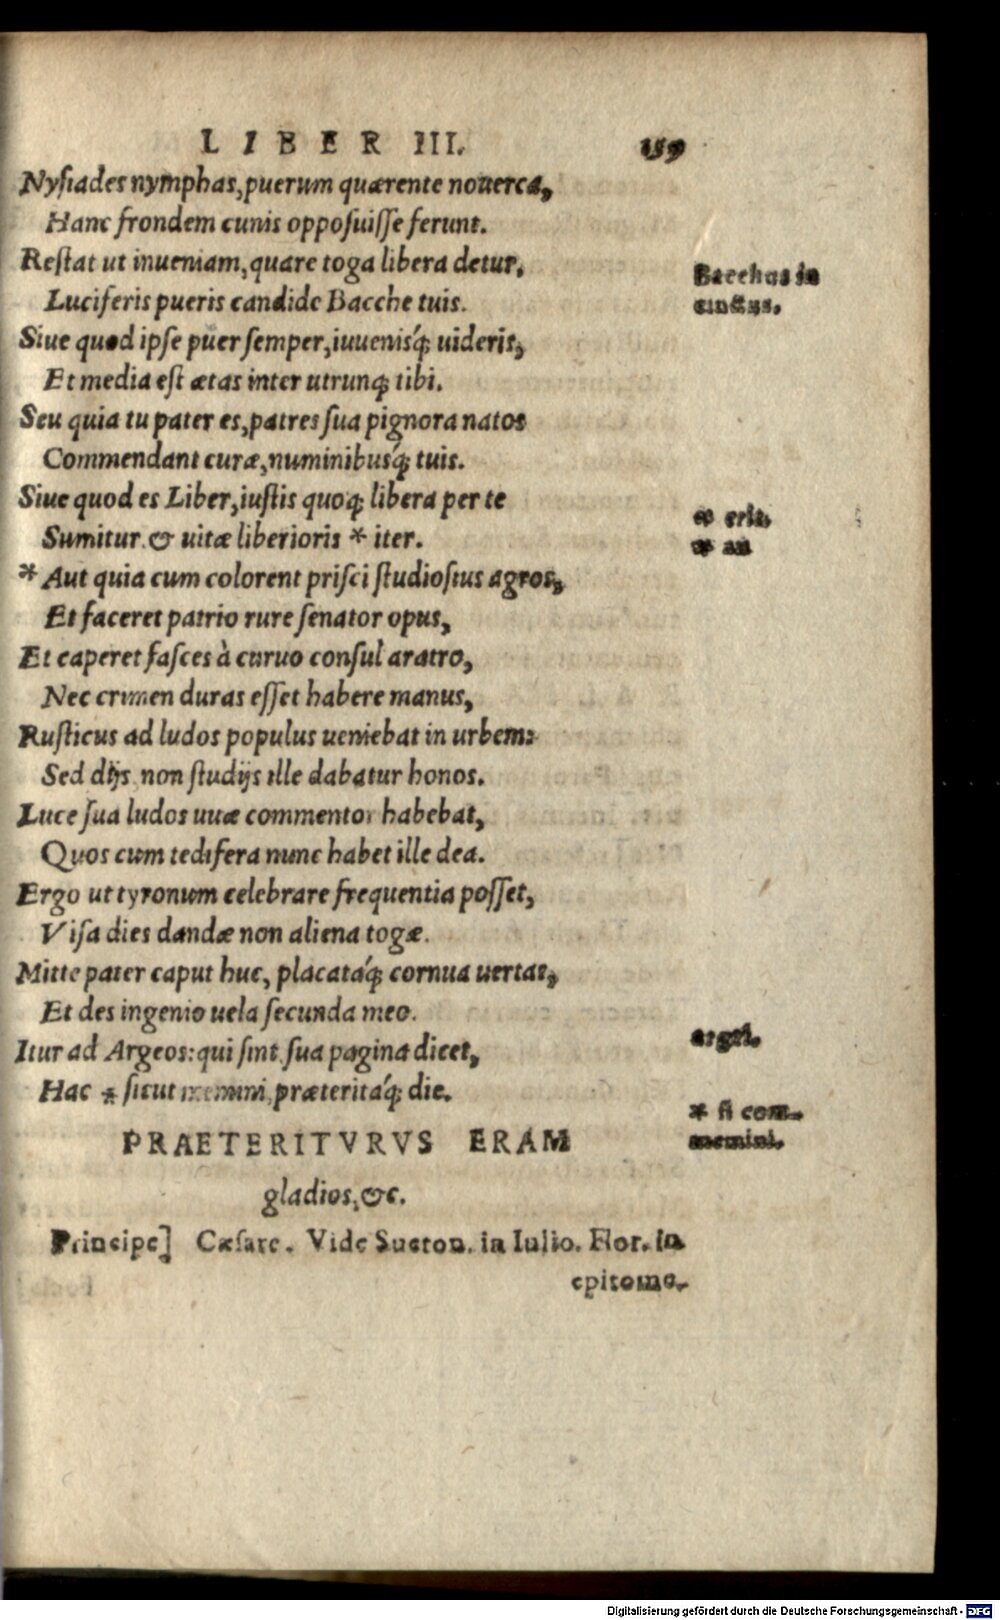 LIBER III. 159
Nyſiades nymphas, puerum quærente nouerca,
Hanc frondem cunis oppoſuiſſe ferunt.
Reſtat ut inueniam, quare toga libera detur,
Luciferis pueris candide Bacche tuis.
Siue quod ipſe puer ſemper, iuuenisq́; uideris,
Et media eſt ætas inter utrunq; tibi.
Seu quia tu pater es, patres ſua pignora natos
Commendant curæ, numinibusq́; tuis.
Siue quod es Liber, iuſtis quoq; libera per te
Sumitur & uitæ liberioris * iter.
* Aut quia cum colorent priſci ſtudioſius agros,
Et faceret patrio rure ſenator opus,
Et caperet faſces à curuo conſul aratro,
Nec crimen duras eſſet habere manus,
Ruſticus ad ludos populus ueniebat in urbem:
Sed dijs non ſtudijs ille dabatur honos.
Luce ſua ludos uuæ commentor habebat,
Quos cum tedifera nunc habet ille dea.
Ergo ut tyronum celebrare frequentia poſſet,
Viſa dies dandæ non aliena togæ.
Mitte pater caput huc, placataq́; cornua uertas,
Et des ingenio uela ſecunda meo.
Itur ad Argeos: qui ſint ſua pagina dicet,
Hac * ſicut memini, præteritaq́; die.
PRAETERITVRVS ERAM
gladios, &c.
Principe] Cæſare. Vide Sueton. in Iulio. Flor. in
epitome.
Bacchus in
* erit.
* an
argei.
* ſi com-
memini.